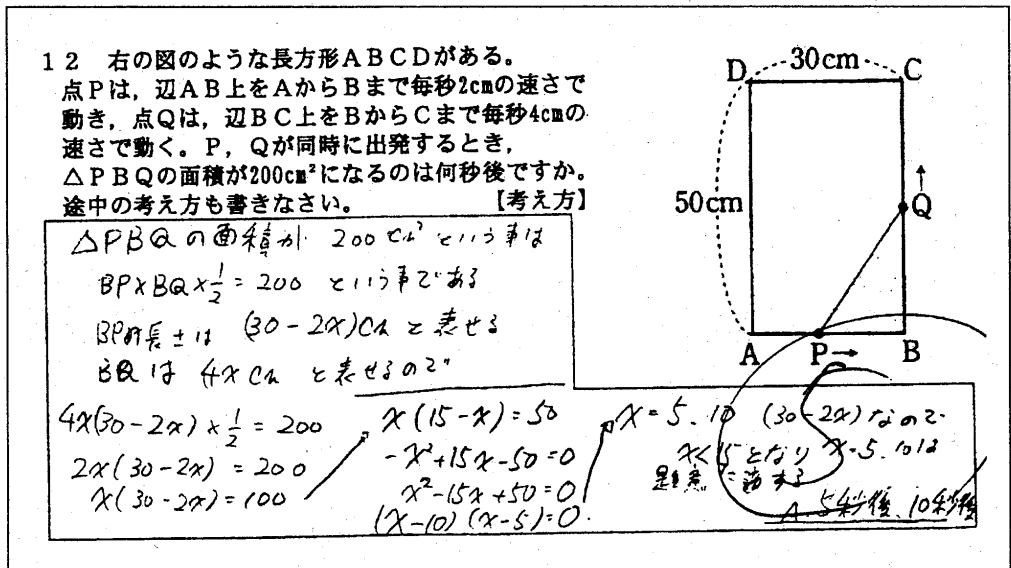 12 右の図のような長方形ABCDがある。
点Pは，辺AB上をAからBまで毎秒2cmの速さで
動き，点Qは，辺BC上をBからCまで毎秒4cmの
速さで動く。P，Qが同時に出発するとき，
△PBQの面積が200cm²になるのは何秒後ですか。
途中の考え方も書きなさい。 【考え方】
D 30cm C
50cm
↑
Q
A P→ B
△PBQの面積が 200cm² という事は
BP×BQ×1/2=200 という事である
BPの長さは (30-2x)cm と表せる
BQは 4xcm と表せるので
4x(30-2x)×1/2=200
2x(30-2x)=200
x(30-2x)=100
x(15-x)=50
-x²+15x-50=0
x²-15x+50=0
(x-10)(x-5)=0.
x=5.10 (30-2x)なので
x<15となり x=5.10は
題意に適する
A. 5秒後、10秒後